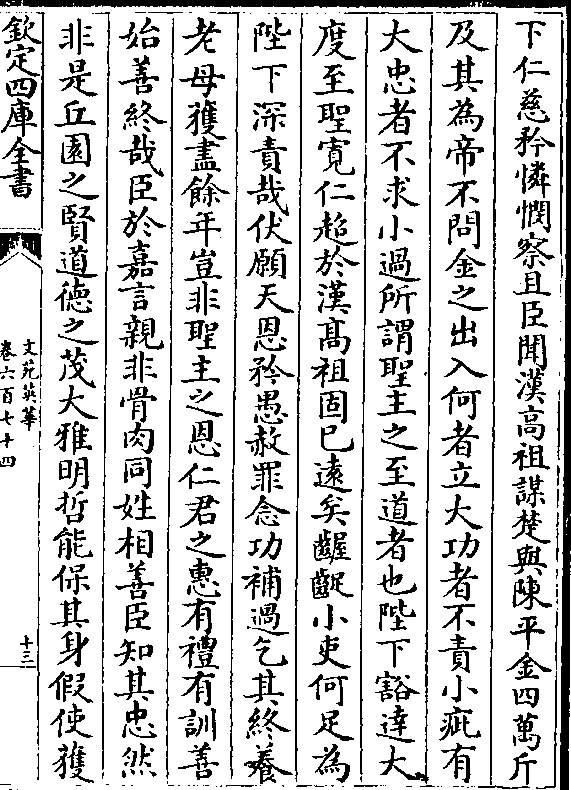 下仁慈矜憐憫察且臣聞漢高祖謀楚與陳平金四萬斤
及其為帝不問金之出入何者立大功者不責小疵有
大忠者不求小過所謂聖主之至道者也陛下豁達大
度至聖寛仁超於漢髙祖固已遠矣齷齪小吏何足為
陛下深責哉伏願天恩矜愚赦罪念功補過乞其終養
老母獲盡餘年豈非聖主之恩仁君之惠有禮有訓善
始善終哉臣於嘉言親非骨肉同姓相善臣知其忠然
非是丘園之賢道德之茂大雅明哲能保其身假使獲
欽定四庫全書
文苑英華
卷六百七十四
十三